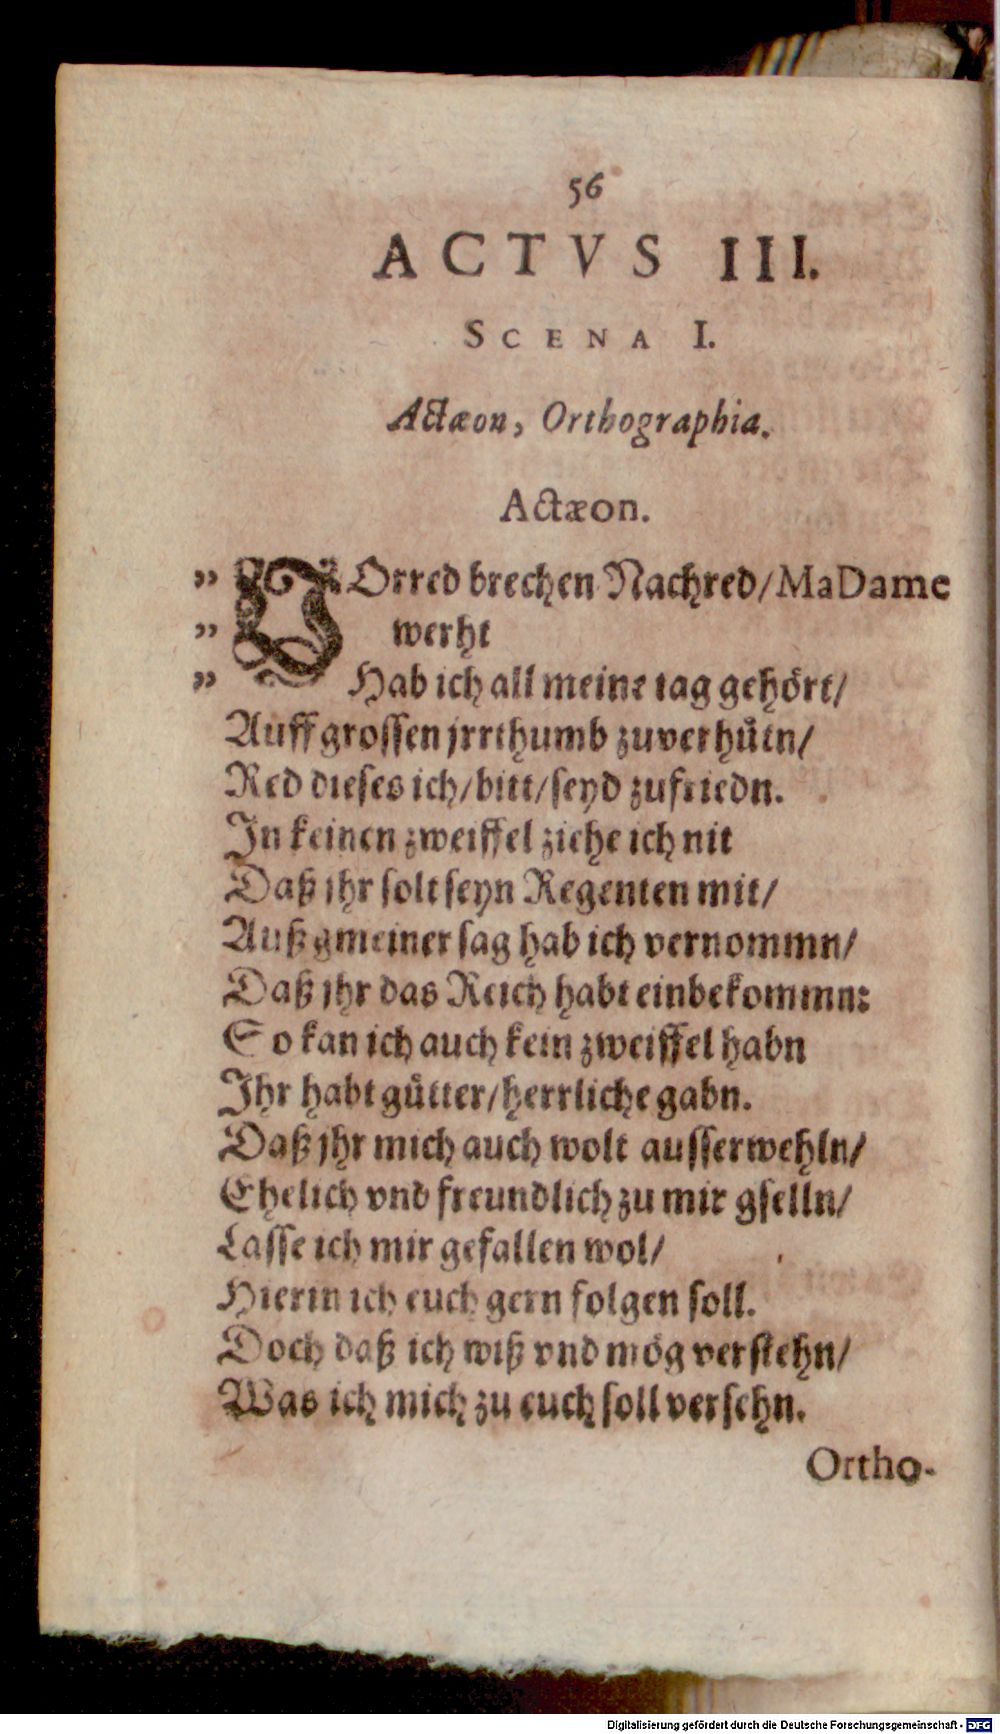 56
ACTVS III.
SCENA I.
Actæon, Orthographia.
Actæon.
„ VOrred brechen Nachred/MaDame
„ werht
„ Hab ich all meine tag gehört/
Auff grossen jrrthumb zuverhütn/
Red dieses ich/bitt/seyd zufriedn.
In keinen zweiffel ziehe ich nit
Daß jhr solt seyn Regenten mit/
Auß gmeiner sag hab ich vernommn/
Daß jhr das Reich habt einbekommn:
So kan ich auch kein zweiffel habn
Ihr habt gütter/herrliche gabn.
Daß jhr mich auch wolt ausserwehln/
Ehelich vnd freundlich zu mir gselln/
Lasse ich mir gefallen wol/
Hierin ich euch gern folgen soll.
Doch daß ich wiß vnd mög verstehn/
Was ich mich zu euch soll versehn.
Ortho-
Digitalisierung gefördert durch die Deutsche Forschungsgemeinschaft - DFG